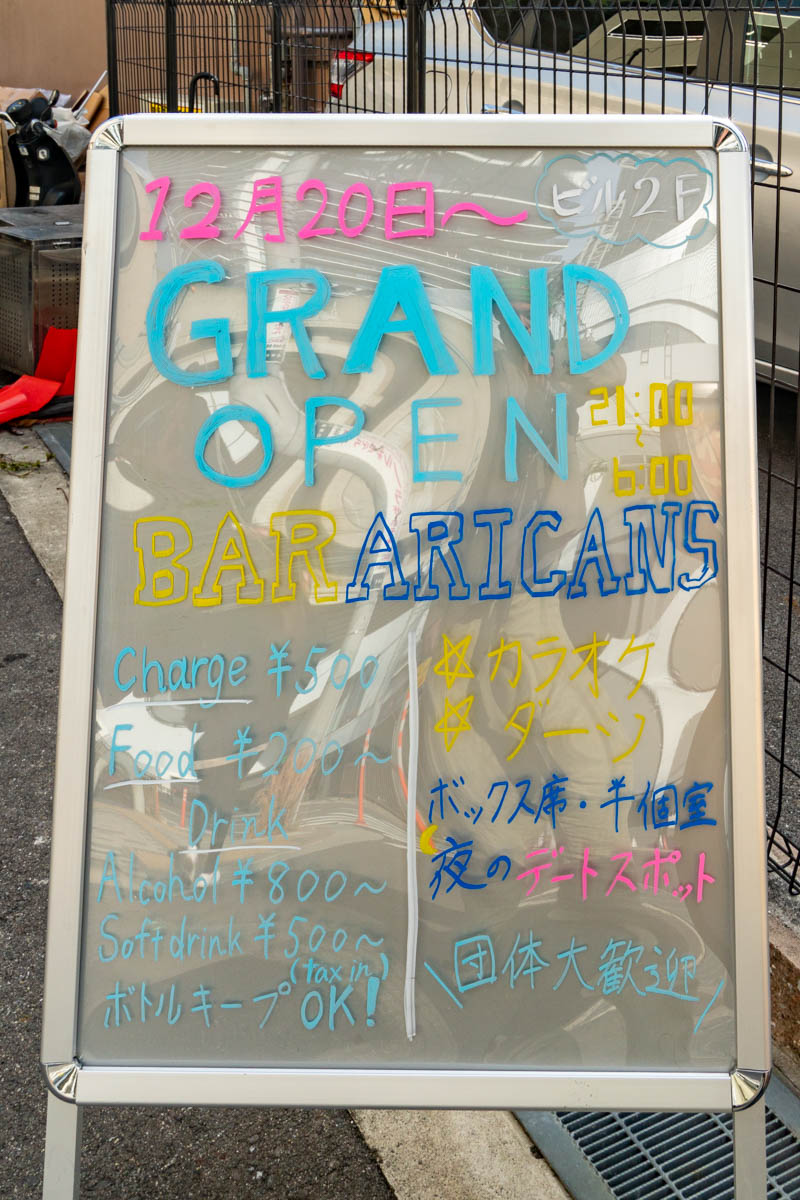 12月20日〜
ビル2F
GRAND
OPEN
21:00
〜
6:00
BAR ARICANS
Charge ¥500
Food ¥200〜
Drink
Alcohol ¥800〜
Softdrink ¥500〜
(tax in)
ボトルキープOK!
☆カラオケ
☆ダーツ
ボックス席・半個室
夜のデートスポット
\団体大歓迎/